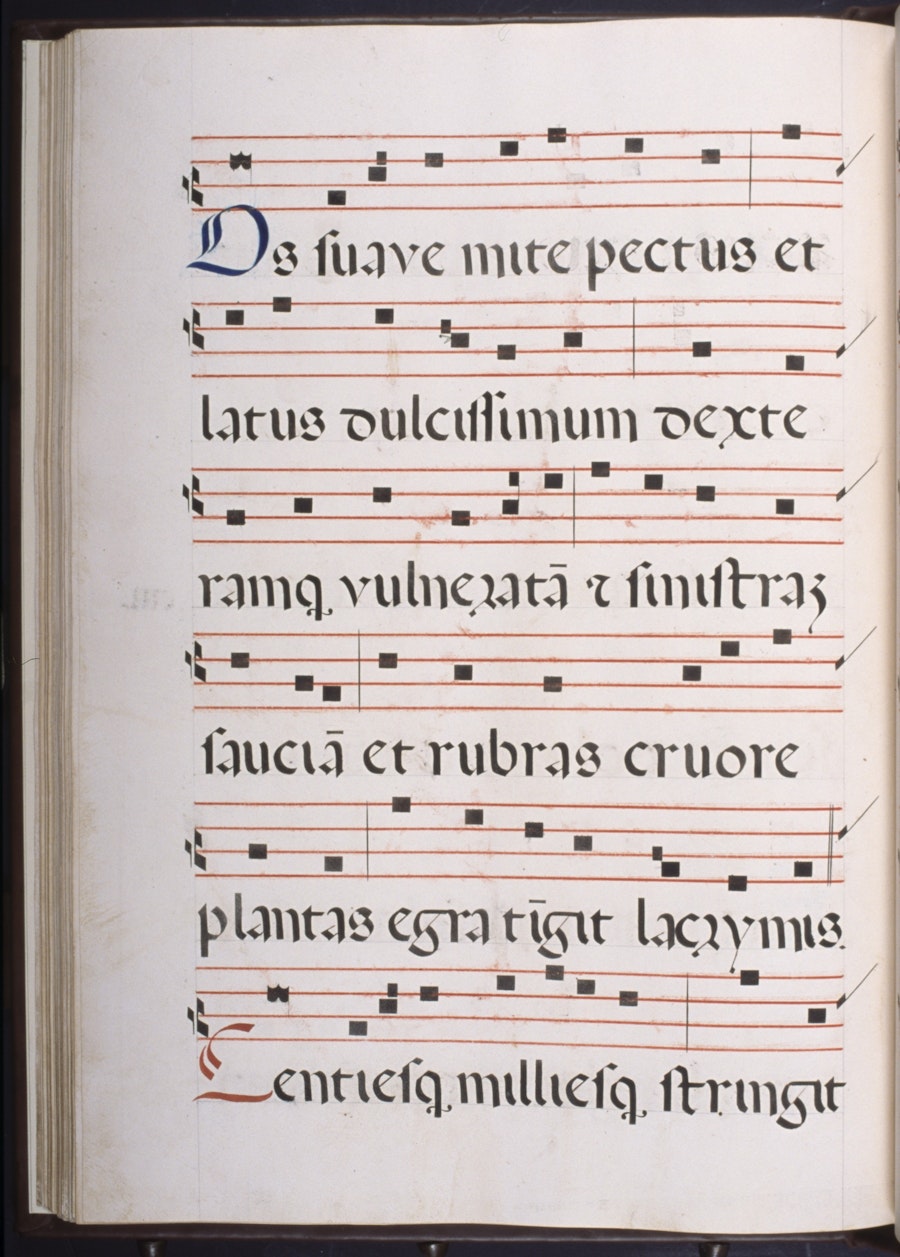 Os suave mite pectus et
latus dulcissimum dexte
ramq vulneratā ⁊ sinistraꝫ
sauciā et rubras cruore
plantas egra tīgit lacrymis.
Centiesq milliesq stringit